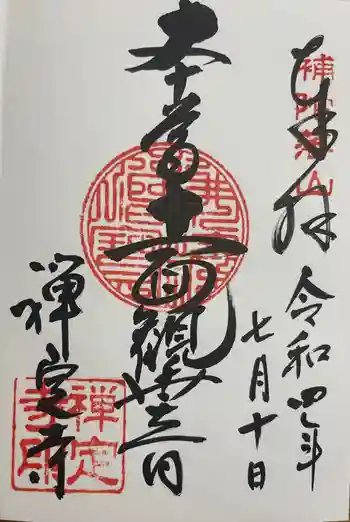 奉拝
補陀洛山
令和四年
七月十日
本尊十一面観世音
禅定寺
禅定寺印